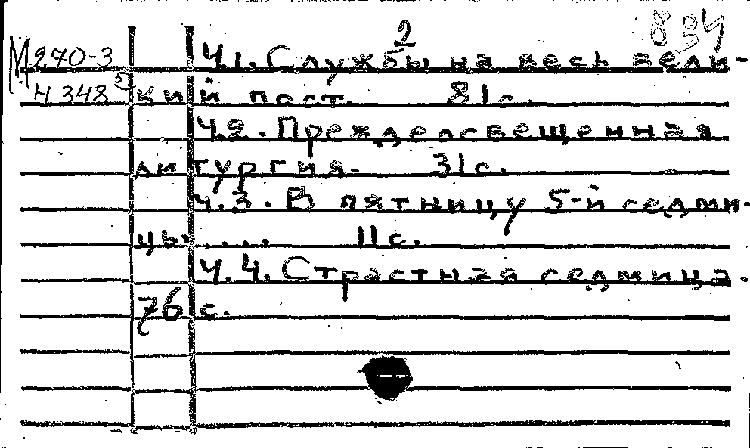 2 834
М270-3 Ч.1. Службы на весь вели-
Ч 348 кий пост. 81с.
Ч.2. Преждеосвещенная
литургия. 31с.
Ч.3. В пятницу 5-й седми-
цы.... 11с.
Ч.4. Страстная седмица.
76 с.